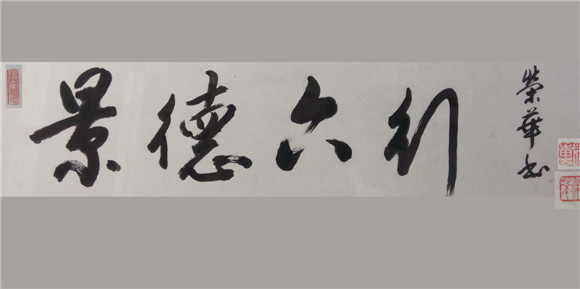 景德六行
榮華书